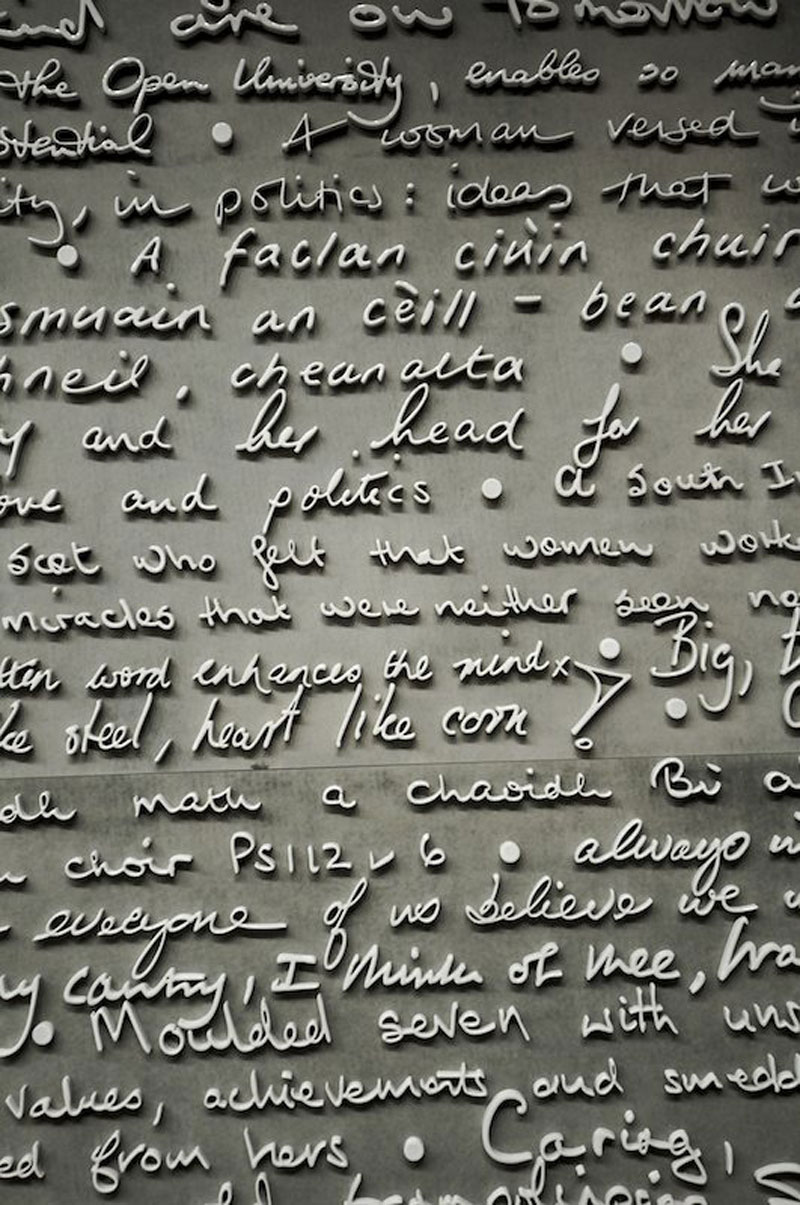 and are our tomorrow
the Open University, enables so man
tential • A woman versed i
ity, in politics: ideas that w
• A faclan ciùin chuir
smuain an cèill - bean a
hneil, cheanalta • She
y and her head for her
ove and politics • a South I
Scot who felt that women worke
miracles that were neither seen no
tten word enhances the mind x • Big, t
ke steel, heart like corn •
dh math a chaoidh Bi a
choir PS112 v 6 • always i
everyone of us believe we
ay cantry, I think of thee, tra
• Moulded seven with uns
values, achievements and smedd
ed from hers • Caring,